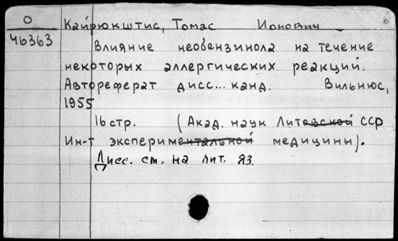 О Кайрюкштис, Томас Ионович
46363 Влияние неовензинола на течение
некоторых аллергических реакций.
Автореферат дисс... канд. Вильнюс,
1955
16 стр. (Акад. наук Литовской ССР
Ин-т экспериментальной медицины).
Дисс. см. на лит. яз.